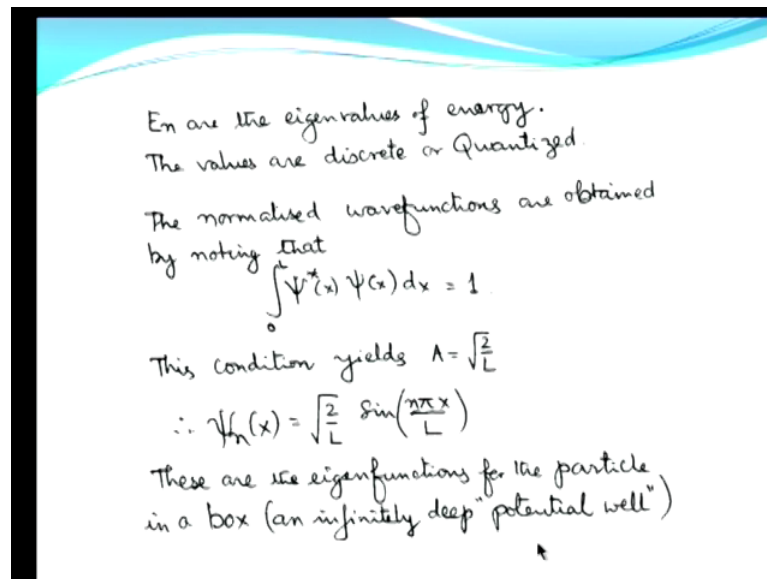 En are the eigenvalues of energy.
The values are discrete or Quantized.
The normalised wavefunctions are obtained
by noting that
∫₀ᴸ ψ*(x) ψ(x) dx = 1
This condition yields A = √(2/L)
∴ ψₙ(x) = √(2/L) Sin(nπx/L)
These are the eigenfunctions for the particle
in a box (an infinitely deep "potential well")